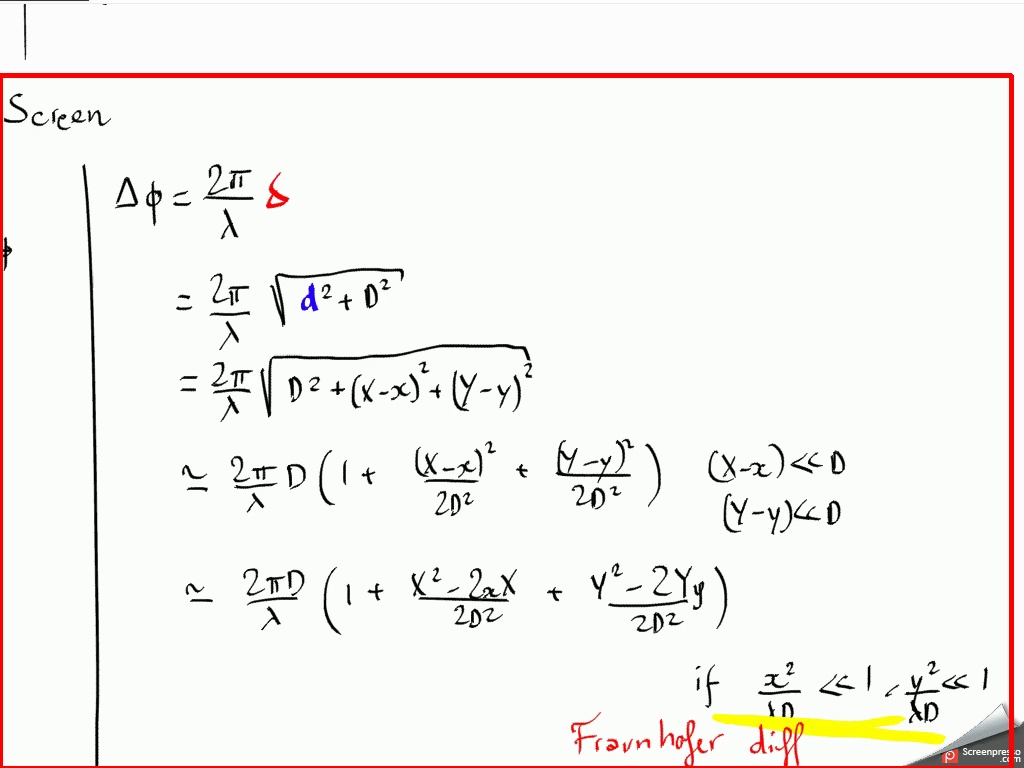 Screen
Δϕ = 2π/λ δ
ϕ
= 2π/λ √(d² + D²)
= 2π/λ √(D² + (X-x)² + (Y-y)²)
≃ 2π/λ D (1 + (X-x)²/2D² + (Y-y)²/2D²) (X-x) ≪ D
(Y-y) ≪ D
≃ 2πD/λ (1 + X² - 2xX/2D² + Y² - 2Yy/2D²)
if x²/λD ≪ 1 , y²/λD ≪ 1
Fraunhofer diff
Screenpresso
.com